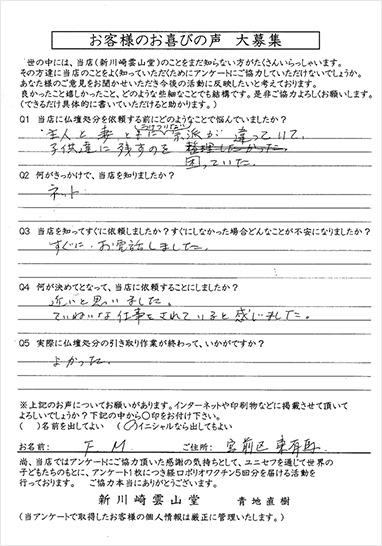 お客様のお喜びの声　大募集
世の中には、当店(新川崎雲山堂)のことをまだ知らない方がたくさんいらっしゃいます。
その方達に当店のことをよく知っていただくためにアンケートにご協力していただけないでしょうか。
あなた様のご意見をお聞かせいただき今後の活動に反映したいと考えております。
良かったこと嬉しかったこと、どのような些細なことでも結構です。是非ご協力よろしくお願いします。
(できるだけ具体的に書いていただけると助かります。)
Q1　当店に仏壇処分を依頼する前にどのようなことで悩んでいましたか?
主人と妻と 宗派が違っていて、
子供達に残すのを 整理したかった。
困っていた。
Q2　何がきっかけで、当店を知りましたか?
ネット
Q3　当店を知ってすぐに依頼しましたか?すぐにしなかった場合どんなことが不安になりましたか?
すぐに・お電話しました。
Q4　何が決めてとなって、当店に依頼することにしましたか?
近いと思いました。
ていねいな仕事をされていると感じました。
Q5　実際に仏壇処分の引き取り作業が終わって、いかがですか?
よかった。
※上記のお声についてお願いがあります。インターネットや印刷物などに掲載させて頂いて
よろしいでしょうか?下記の中から〇印をお付け下さい。
(　)名前を出してよい　(〇)イニシャルなら出してもよい
お名前:　F M.　ご住所:　宮前区 東有馬
尚、当店ではアンケートにご協力頂いた感謝の気持ちとして、ユニセフを通じて世界の
子どもたちのもとに、アンケート1枚につき経口ポリオワクチン5回分を届ける活動を
行っております。　ご協力本当にありがとうございます。
新川崎雲山堂　青地直樹
(当アンケートで取得したお客様の個人情報は厳正に管理いたします。)